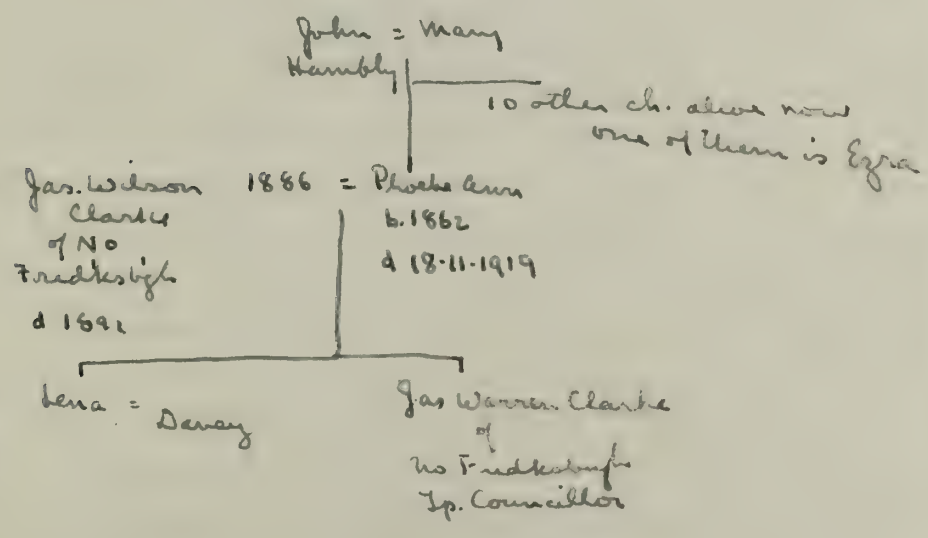 John = Mary
Hambly
10 other ch. alive now
one of them is Ezra
Jas. Wilson 1886 = Phoebe Ann
Clarke
of No
Fredksbgh
d 1892
b. 1862
d 18.11.1919
Lena =
Davey
Jas Warren Clarke
of
No Fredksburgh
Tp. Councillor